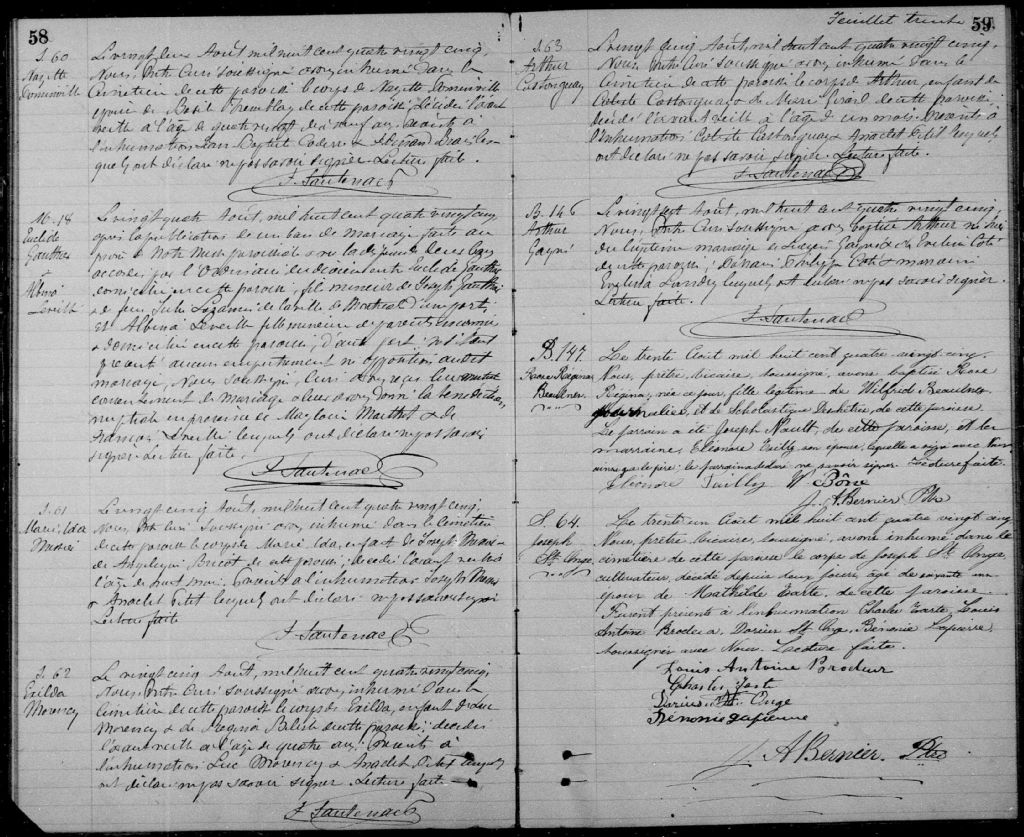 58
S. 60
Nazette
Dominville
Le vingt deux Août, mil huit cent quatre vingt cinq,
Nous, Ptre Curé soussigné avons inhumé dans le
Cimetière de cette paroisse le corps de Nazette Dominville
épouse de Tremblay de cette paroisse, décédée l'avant
veille à l'âge de quatre vingt dix neuf ans. Présents à
l'inhumation Jean Baptiste & les-
quels ont déclaré ne pas savoir signer. Lecture faite.
J. Sautenac
M. 18
Euclide
Gauthier
&
Albina
Léveillé
Le vingt quatre Août, mil huit cent quatre vingt cinq
après la publication de un ban de mariage faite au
prône de Notre Messe paroissiale & vu la dispense de deux bans
accordée par l'Ordinaire en Euclide Gauthier
domicilié en cette paroisse, fils mineur de Joseph Gauthier
& de feu Julie de la ville de Montréal d'une part;
Et Albina Léveillé fille mineure de parents inconnus
& domiciliée en cette paroisse, d'autre part; n'étant
présenté aucun empêchement ni opposition au dit
mariage, Nous, Soussigné, Curé, avons reçu leur mutuel
consentement de mariage & leur avons donné la bénédiction
nuptiale en présence de & de
François Léveillé lesquels ont déclaré ne pas savoir
signer. Lecture faite.
J. Sautenac
S. 61
Marie, Ida
Le vingt cinq Août, mil huit cent quatre vingt cinq,
Nous, Ptre Curé Soussigné avons inhumé dans le Cimetière
de cette paroisse le corps de Marie Ida, enfant de Joseph
& de Angélique de cette paroisse; décédée l'avant veille à
l'âge de huit mois. Présents à l'inhumation Joseph
& Anaclet Petit lesquels ont déclaré ne pas savoir signer
Lecture faite
J. Sautenac
S. 62
Exilda
Morency
Le vingt cinq Août, mil huit cent quatre vingt cinq,
Nous, Ptre Curé soussigné avons inhumé dans le
Cimetière de cette paroisse le corps de Exilda, enfant de Luc
Morency & de Regina de cette paroisse; décédée
l'avant veille à l'âge de quatre ans. Présents à
l'inhumation Luc Morency & Anaclet Petit lesquels
ont déclaré ne pas savoir signer. Lecture faite
J. Sautenac
Feuillet trente
59
S. 63
Arthur
Castonguay
Le vingt cinq Août, mil huit cent quatre vingt cinq,
Nous, Ptre Curé Soussigné avons inhumé dans le
Cimetière de cette paroisse le corps de Arthur, enfant de
Céleste Castonguay & de Marie Girard de cette paroisse
décédé l'avant veille à l'âge d'un mois. Présents à
l'inhumation Céleste Castonguay & Anaclet Petit lesquels
ont déclaré ne pas savoir signer. Lecture faite.
J. Sautenac
B. 146
Arthur
Gagné
Le vingt sept Août, mil huit cent quatre vingt cinq,
Nous, Ptre Curé soussigné avons baptisé Arthur né hier
du légitime mariage de Gagné & de Evelina Côté
de cette paroisse; Parrain Côté & marraine
Landry lesquels ont déclaré ne pas savoir signer.
Lecture faite.
J. Sautenac
B. 147.
Rose Regina
Le trente Août mil huit cent quatre-vingt cinq.
Nous, prêtre, vicaire, soussigné, avons baptisé Rose
Regina, née ce jour, fille légitime de Wilfrid
journalier, et de Scholastique de cette paroisse
Le parrain a été Joseph Nault, de cette paroisse, et la
marraine, Eléonore son épouse, laquelle a signé avec nous
ainsi que le père; le parrain a déclaré ne savoir signer. Lecture faite.
Eléonore
J. A Bernier Ptre
S. 64.
Joseph
St. Onge
Le trente un Août mil huit cent quatre vingt cinq
Nous, prêtre, vicaire, soussigné, avons inhumé dans le
cimetière de cette paroisse le corps de Joseph St. Onge
cultivateur, décédé depuis deux jours, âgé de soixante ans
époux de Mathilde Tarte, de cette paroisse.
Furent présents à l'inhumation Charles Tarte, Louis
Antoine Brodeur, Darius St. Onge, Bénonie Lapierre,
soussignés avec Nous. Lecture faite.
Louis Antoine Brodeur
Charles Tarte
Darius St. Onge
Bénonie Lapierre
J. A Bernier. Ptre